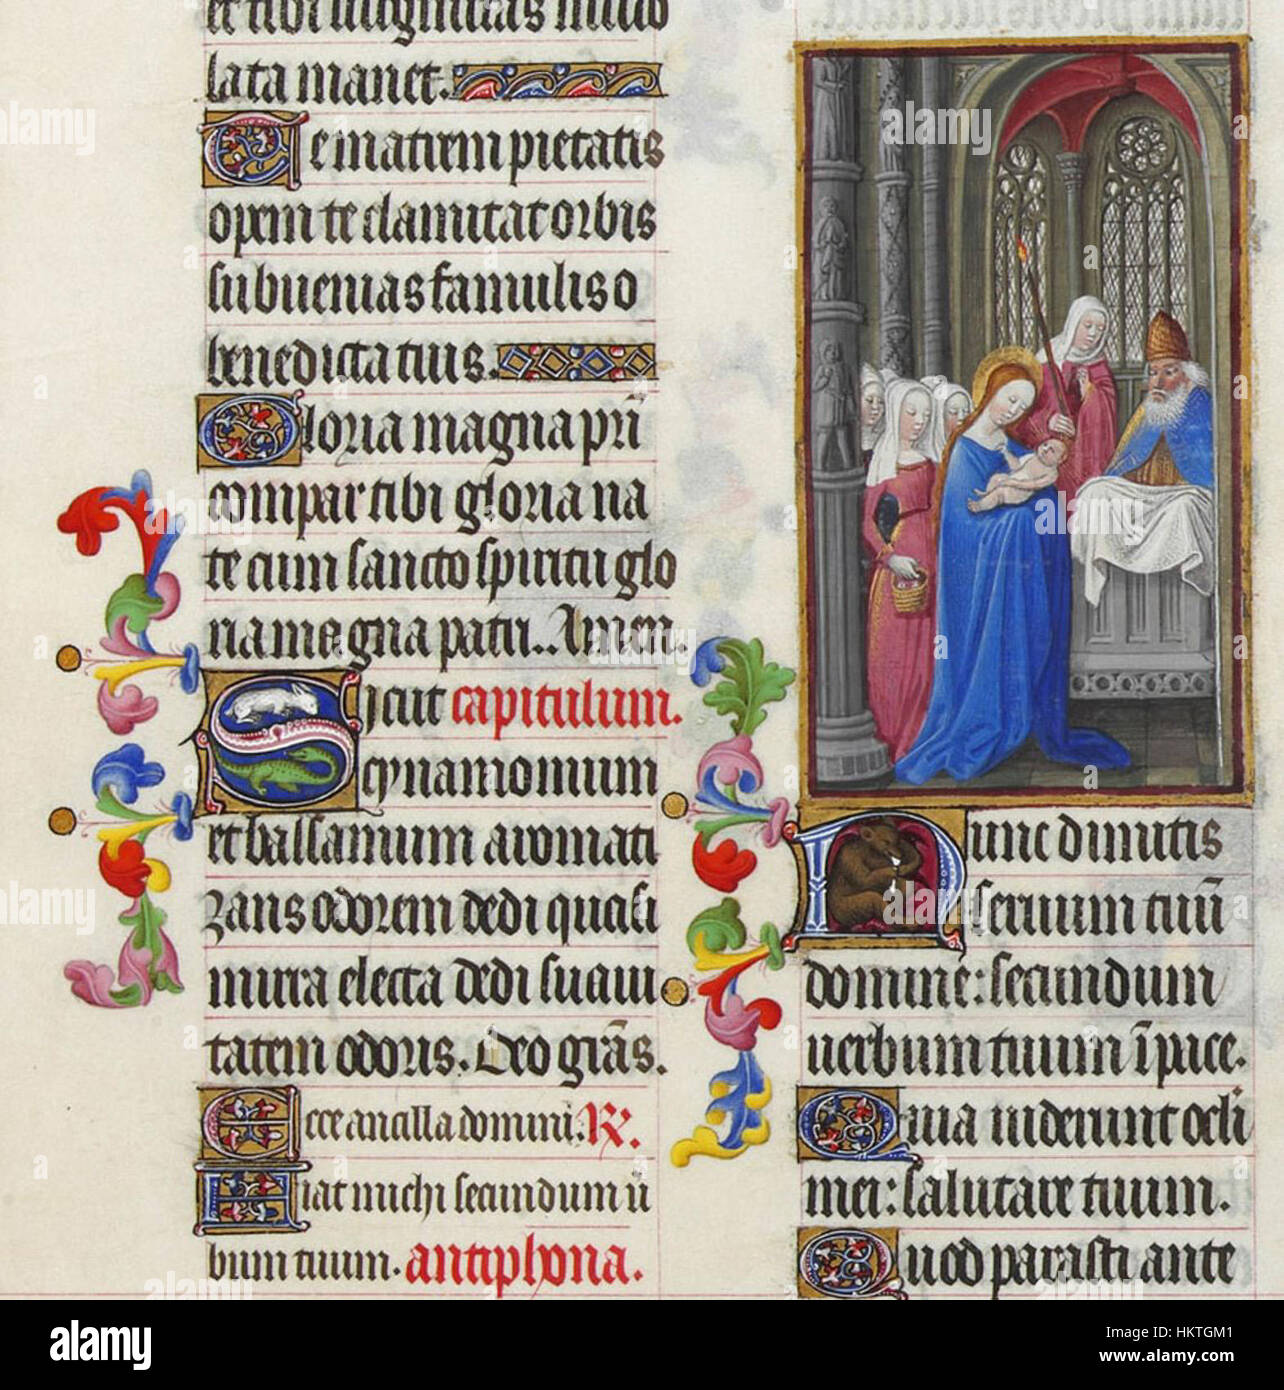 et tibi virginitas inviolata manet.
Te matrem pietatis
opem te clamitat orbis
subuenias famulis o
benedicta tuis.
Gloria magna pr̄i
compar tibi gloria na
te cum sancto spiritu glo
ria magna patri. Amen.
Sicut capitulum.
cynamomum
et balsamum aromati
zans odorem dedi quasi
mirra electa dedi suaui
tatem odoris. Deo grās.
Ecce ancilla domini. R.
Fiat michi secundum ū
bum tuum. antiphona.
Nunc dimitis
seruum tuū
domine: secundum
uerbum tuum ī pace.
Quia uiderunt ocli
mei: salutare tuum.
Quod parasti ante
alamy
Image ID: HKTGM1
www.alamy.com